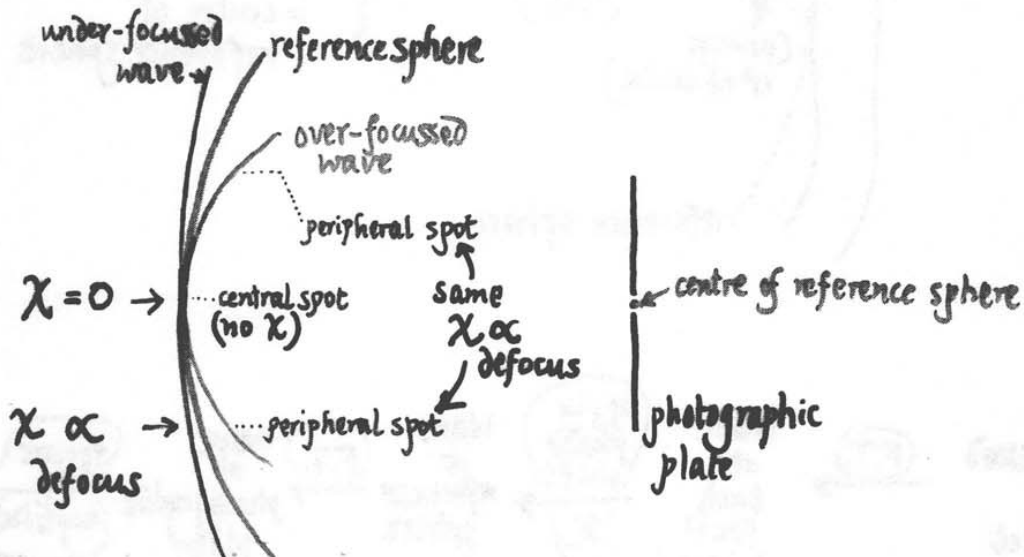 under-focussed
wave
reference sphere
over-focussed
wave
peripheral spot
χ = 0 →
central spot
(no χ)
same
χ ∝
defocus
centre of reference sphere
χ ∝ →
defocus
peripheral spot
photographic
plate